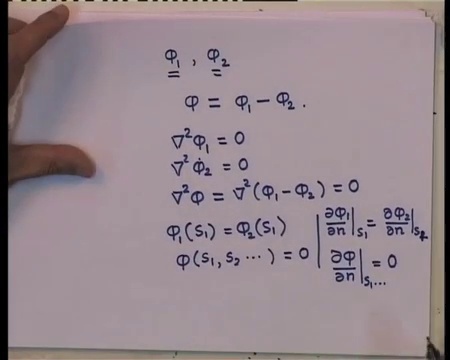 φ₁ , φ₂
φ = φ₁ − φ₂ .
∇²φ₁ = 0
∇²φ₂ = 0
∇²φ = ∇²(φ₁ − φ₂) = 0
φ₁(S₁) = φ₂(S₁) | ∂φ₁/∂n|S₁ = ∂φ₂/∂n|S₂
φ(S₁, S₂ ⋯) = 0 | ∂φ/∂n|S₁⋯ = 0